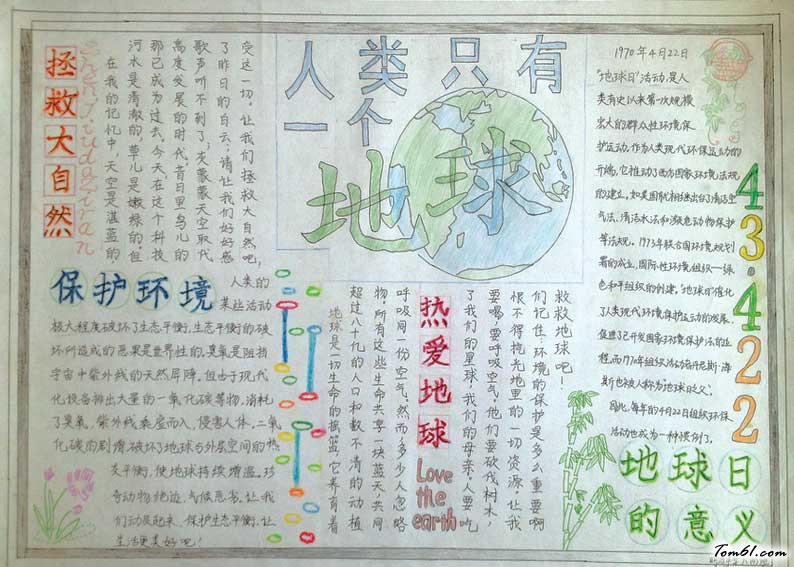 人类只有
一个
地球
拯救大自然
Zhengjiudaziran
在我的记忆中，天空是湛蓝的
河水是清澈的，草儿是嫩绿的。但
那已成为过去。今天在这个科技
高度发展的时代，昔日里鸟儿的
歌声听不到了；灰蒙蒙天空取代
了昨日的白云；请让我们好好感
受这一切。让我们拯救大自然吧，
保护环境
人类的
某些活动
极大程度破坏了生态平衡，生态平衡的破
坏所造成的恶果是世界性的。臭氧是阻挡
宇宙中紫外线的天然屏障。但由于现代
化设备排出大量的一氧化碳等物，消耗
了臭氧，紫外线乘虚而入，侵害人体，二氧
化碳的剧增，破坏了地球与外层空间的热
交平衡，使地球持续增温。珍
奇动物绝迹，气候恶劣。让我
们动员起来，保护生态平衡，让
生活更美好吧！
热爱地球
Love
the
earth
地球是一切生命的摇篮，它养育着
超过八十亿的人口和数不清的动植
物。所有这些生命共享一块蓝天，共同
呼吸同一份空气。然而，多少人忽略
了我们的星球，我们的母亲。人要吃
要喝，要呼吸空气，他们要砍伐树木，
恨不得挖光地里的一切资源。让我
们记住：环境的保护是多么重要啊
救救地球吧！
1970年4月22日
“地球日”活动，是人
类有史以来第一次规模
宏大的群众性环境保
护运动。作为人类现代环保运动的
开端，它推动了西方国家环境法规
的建立。如美国就相继出台了清洁空
气法，清洁水法和濒危动物保护
等法规。1973年联合国环境规划
署的成立，国际性环境组织—绿
色和平组织的创建。“地球日”催化
了人类现代环境保护运动的发展，
促进了已开发国家环境保护法的进
程，而1970年组织活动者丹尼斯·海
斯也被人称为地球日之父。
因此，每年的4月22日组织环保
活动也成为一种惯例了。
43.422
地球日
的意义
Tom61.com